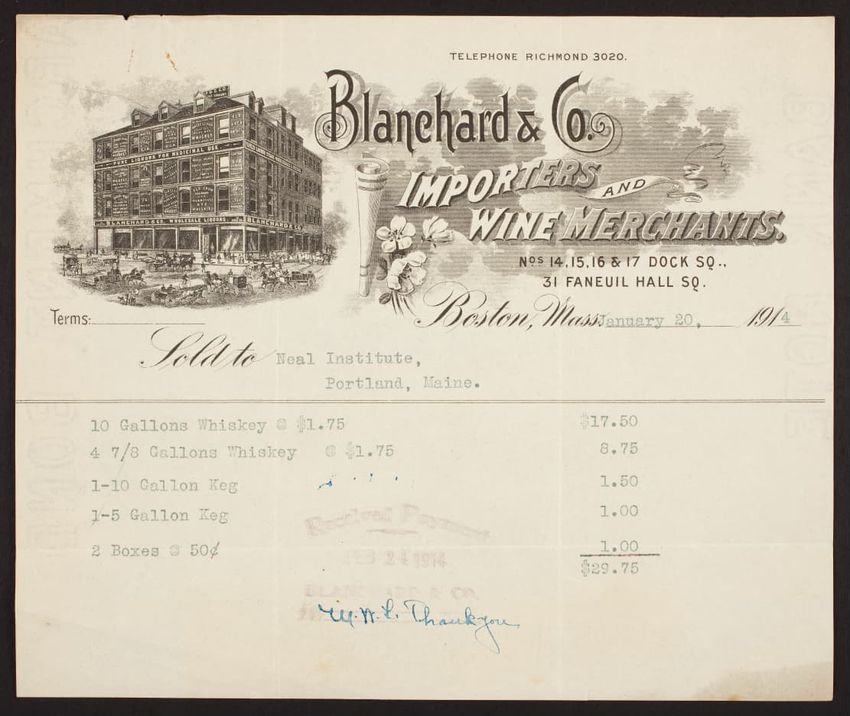 TELEPHONE RICHMOND 3020.
Blanchard & Co.
IMPORTERS AND
WINE MERCHANTS.
Nos 14, 15, 16 & 17 DOCK SQ.,
31 FANEUIL HALL SQ.
PURE LIQUORS FOR MEDICINAL USE
BLANCHARD & CO. WHOLESALE LIQUORS BLANCHARD & CO.
Terms:
Boston, Mass. January 20, 1914
Sold to Neal Institute,
Portland, Maine.
10 Gallons Whiskey @ $1.75 $17.50
4 7/8 Gallons Whiskey @ $1.75 8.75
1-10 Gallon Keg 1.50
1-5 Gallon Keg 1.00
2 Boxes @ 50¢ 1.00
$29.75
Received Payment
24 1914
BLANCHARD & CO.
Thank you